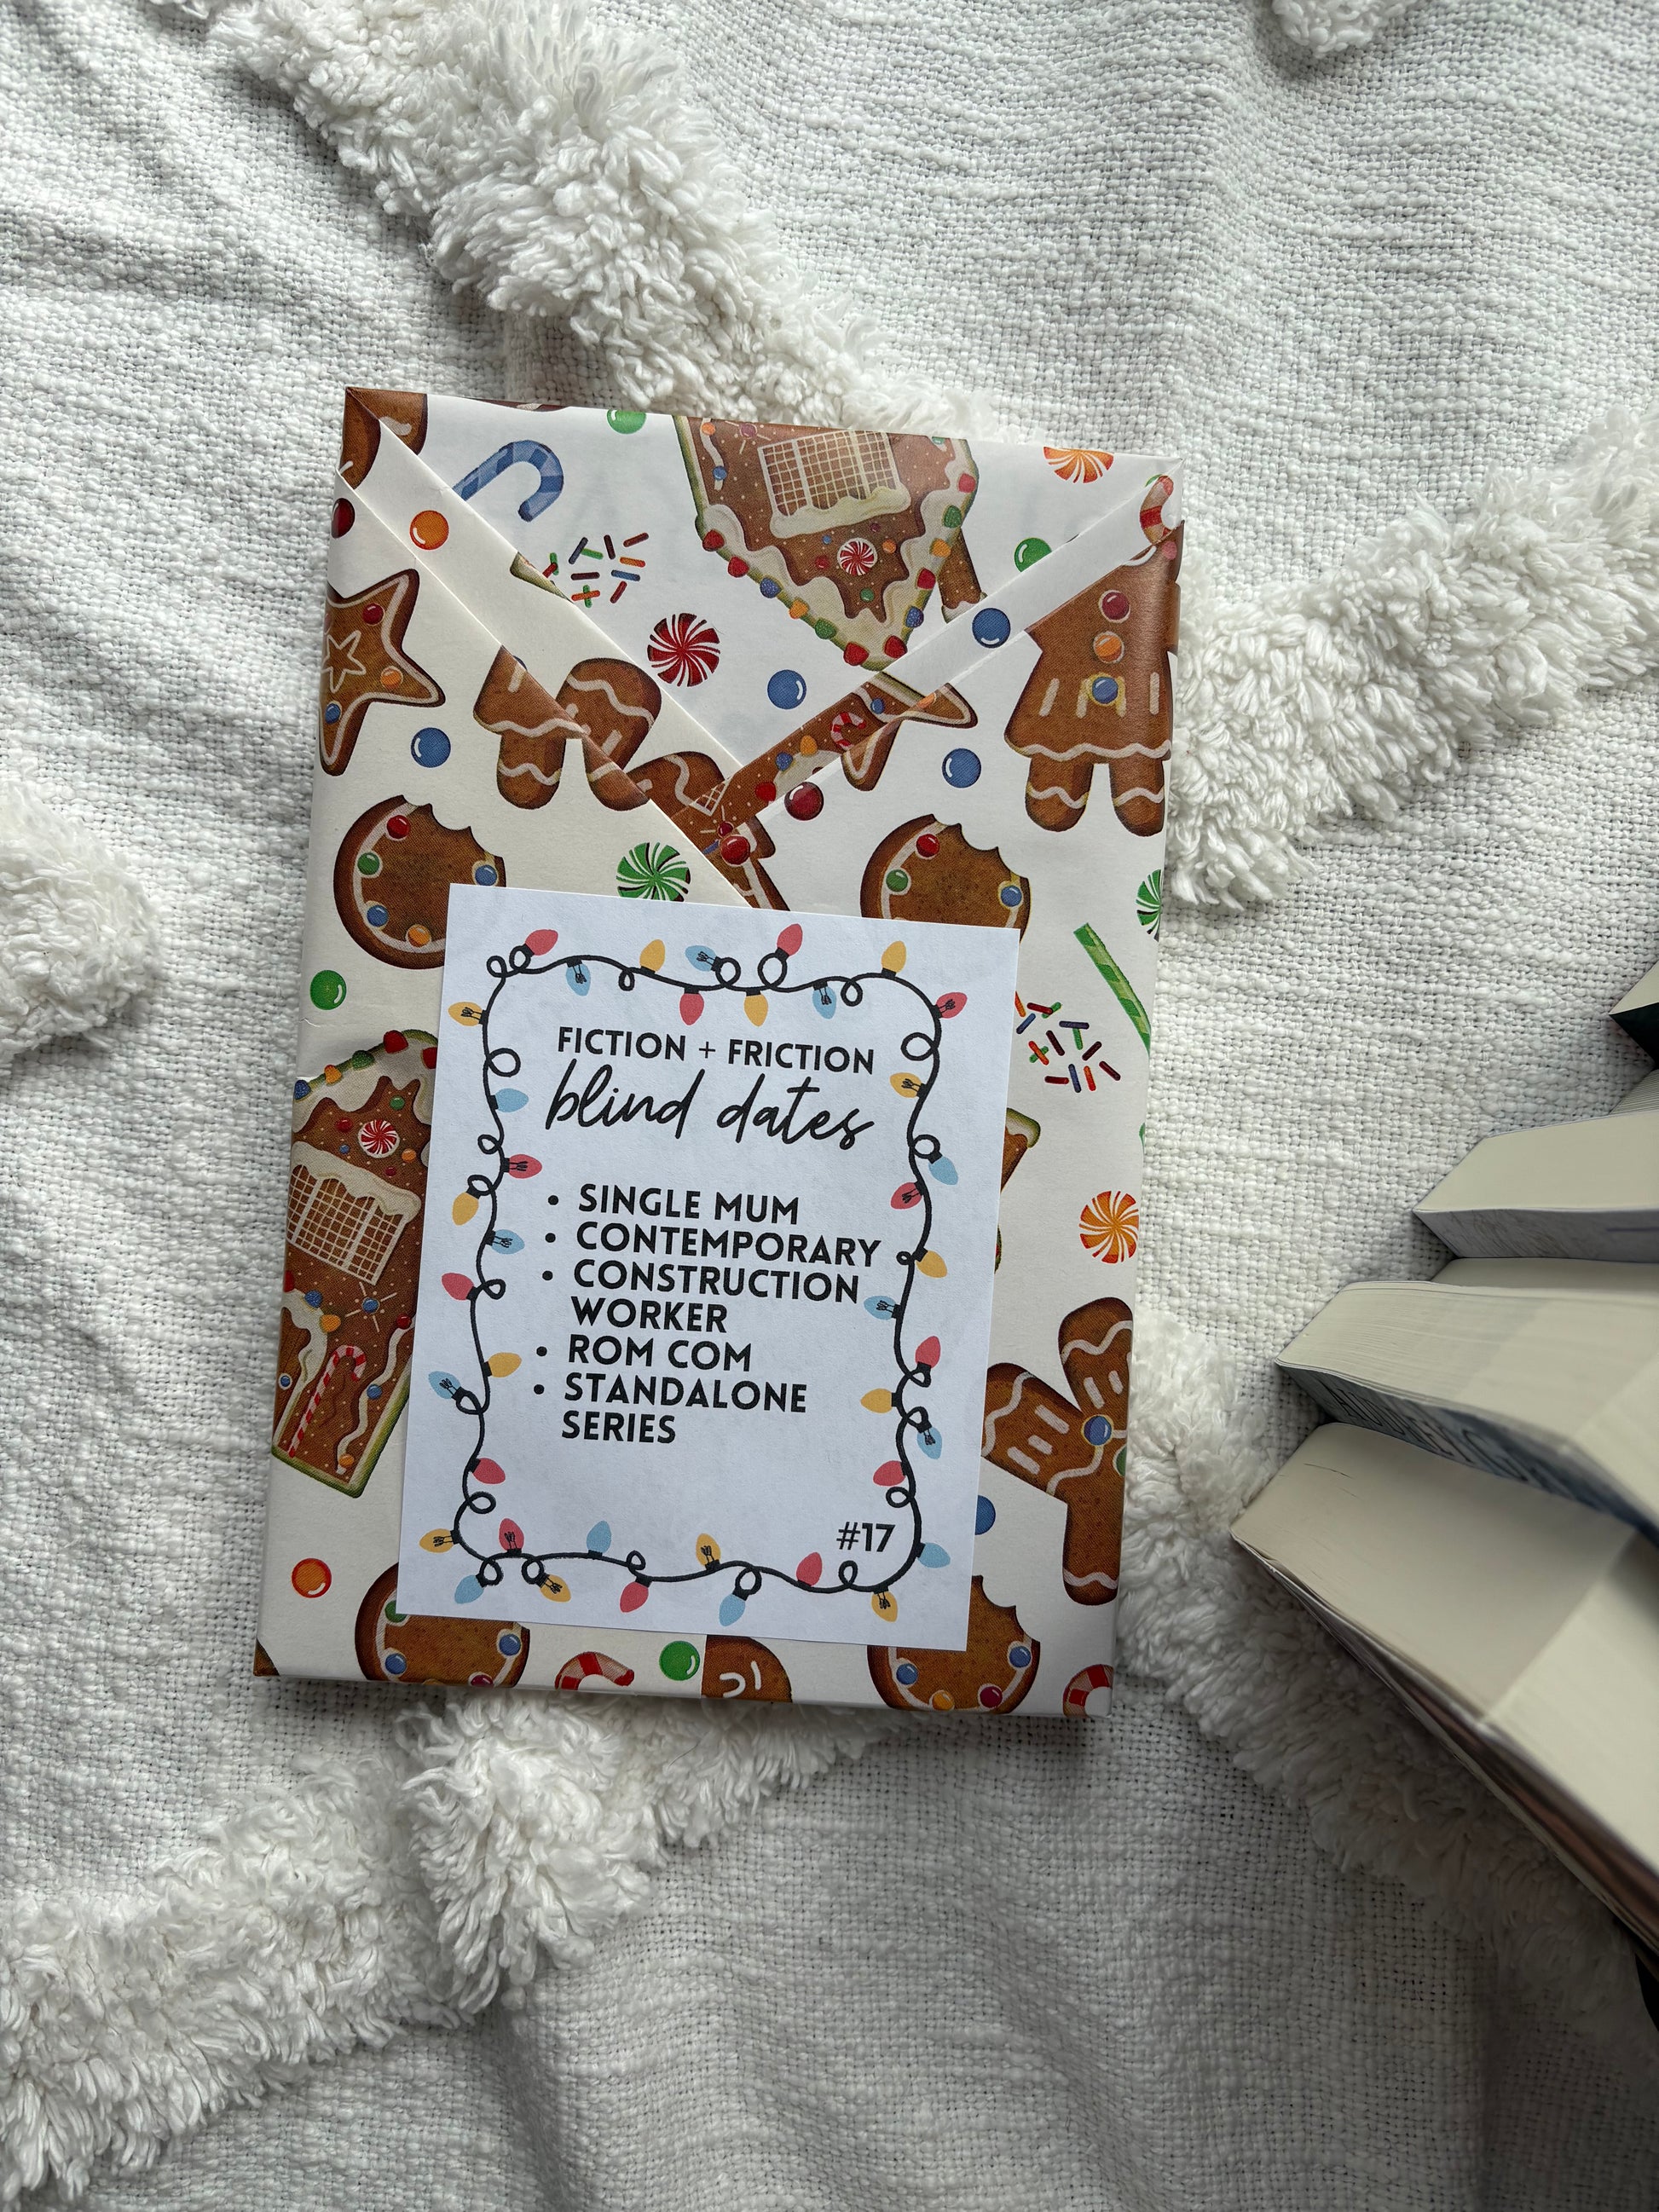 FICTION + FRICTION
blind dates
• SINGLE MUM
• CONTEMPORARY
• CONSTRUCTION
WORKER
• ROM COM
• STANDALONE
SERIES
#17